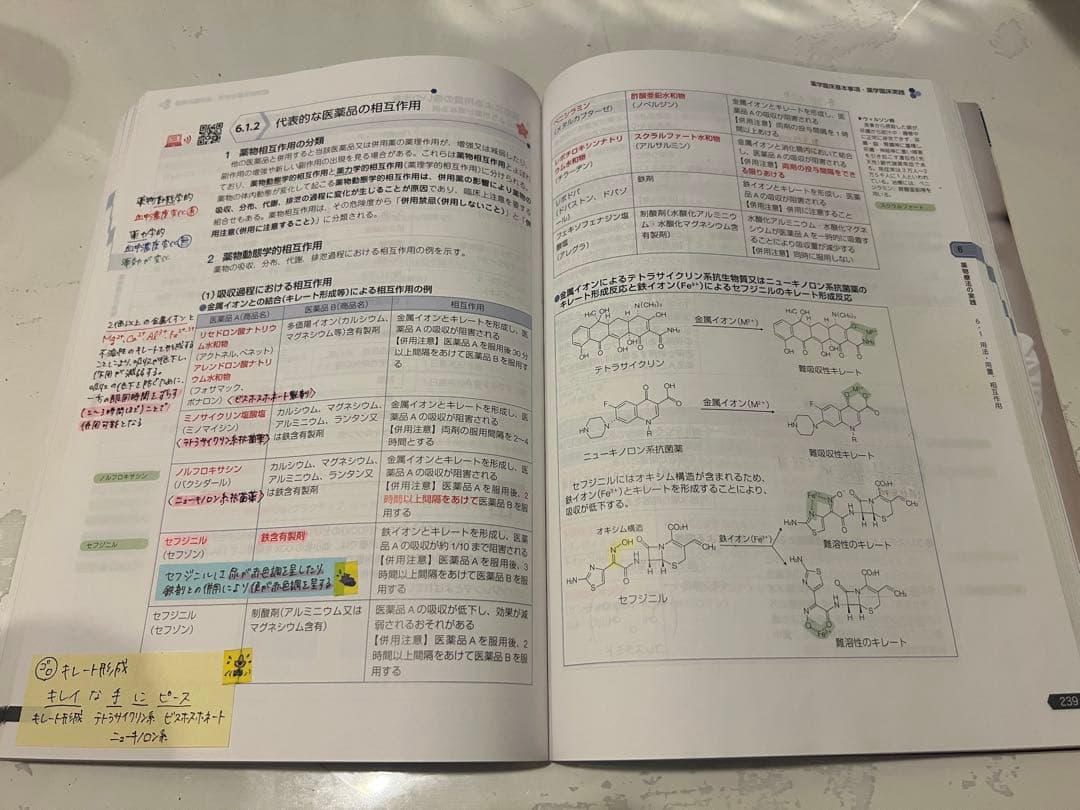 6.1.2 代表的な医薬品の相互作用
1 薬物相互作用の分類
他の医薬品と併用すると当該医薬品又は併用薬の薬理作用が、増強又は減弱したり、
副作用の増強や新しい副作用の出現を見る場合がある。これらは薬物相互作用とよばれ
ており、薬物動態学的相互作用と薬力学的相互作用(薬理学的相互作用)に分けられる。
薬物の体内動態が変化して起こる薬物動態学的相互作用は、併用薬の影響により薬物の
吸収、分布、代謝、排泄の過程に変化が生じることが原因であり、臨床上注意を要する
組合せもある。薬物相互作用は、その危険度から「併用禁忌(併用しないこと)」と「併
用注意(併用に注意すること)」に分類される。
薬物動態学的
血中濃度変化
薬力学的
血中濃度変化
薬効が変化
2 薬物動態学的相互作用
薬物の吸収、分布、代謝、排泄過程における相互作用の例を示す。
(1) 吸収過程における相互作用
●金属イオンとの結合(キレート形成等)による相互作用の例
医薬品A(商品名) 医薬品B(商品名) 相互作用
リセドロン酸ナトリウ
ム水和物
(アクトネル、ベネット)
アレンドロン酸ナトリ
ウム水和物
(フォサマック、
ボナロン)
〈ビスホスホネート製剤〉
多価陽イオン(カルシウム、
マグネシウム等)含有製剤
金属イオンとキレートを形成し、医
薬品Aの吸収が阻害される
【併用注意】医薬品Aを服用後30分
以上間隔をあけて医薬品Bを服用す
る
2価以上の金属イオンと
Mg²⁺
不溶性のキレートを形成する
ことにより、吸収が低下し
作用が減弱する。
吸収の低下を防ぐために、
一方の服用時間をずらす
(2〜3時間ほど)ことで
併用可能となる
ミノサイクリン塩酸塩
(ミノマイシン)
〈テトラサイクリン系抗菌薬〉
カルシウム、マグネシウム、
アルミニウム、ランタン又
は鉄含有製剤
金属イオンとキレートを形成し、医
薬品Aの吸収が阻害される
【併用注意】両剤の服用間隔を2〜4
時間とする
ノルフロキサシン
ノルフロキサシン
(バクシダール)
〈ニューキノロン系抗菌薬〉
カルシウム、マグネシウム、
アルミニウム、ランタン又
は鉄含有製剤
金属イオンとキレートを形成し、医
薬品Aの吸収が阻害される
【併用注意】医薬品Aを服用後、2
時間以上間隔をあけて医薬品Bを服
用する
セフジニル
セフジニル
(セフゾン)
鉄含有製剤
鉄イオンとキレートを形成し、医薬
品Aの吸収が約1/10まで阻害される
【併用注意】医薬品Aを服用後、3
時間以上間隔をあけて医薬品Bを服
用する
セフジニルは尿が赤色調を呈したり、
鉄剤との併用により便が赤色調を呈する
セフジニル
(セフゾン)
制酸剤(アルミニウム又は
マグネシウム含有)
医薬品Aの吸収が低下し、効果が減
弱されるおそれがある
【併用注意】医薬品Aを服用後、2
時間以上間隔をあけて医薬品Bを服
用する
ゴロ キレート形成
キレイな手にピース
キレート形成 テトラサイクリン系 ビスホスホネート
ニューキノロン系
薬学臨床基本事項・薬学臨床実践
ペニシラミン
(メタルカプターゼ)
酢酸亜鉛水和物
(ノベルジン)
金属イオンとキレートを形成し、医薬
品Aの吸収が阻害される
【併用注意】両薬の投与間隔を1時
間以上あける
レボフロキサシンナトリ
ウム水和物
スクラルファート水和物
(アルサルミン)
金属イオンと消化管内において結合
し、医薬品Aの吸収が阻害される
【併用注意】両剤の投与間隔をでき
る限りあける
レボドパ
(ドパストン、ドパゾ
ール)
鉄剤
鉄イオンとキレートを形成し、医薬
品Aの吸収が阻害される
【併用注意】併用に注意すること
フェキソフェナジン塩
酸塩
(アレグラ)
制酸剤(水酸化アルミニウ
ム・水酸化マグネシウム
含有製剤)
水酸化アルミニウム・水酸化マグネ
シウムが医薬品Aを一時的に吸着す
ることにより吸収量が減少する
【併用注意】同時に服用しない
●ウィルソン病
スクラルファート
●金属イオンによるテトラサイクリン系抗生物質又はニューキノロン系抗菌薬の
キレート形成反応と鉄イオン(Fe³⁺)によるセフジニルのキレート形成反応
テトラサイクリン
金属イオン(M²⁺)
難吸収性キレート
ニューキノロン系抗菌薬
金属イオン(M²⁺)
難吸収性キレート
セフジニルにはオキシム構造が含まれるため、
鉄イオン(Fe³⁺)とキレートを形成することにより、
吸収が低下する。
オキシム構造
鉄イオン(Fe³⁺)
セフジニル
難溶性のキレート
難溶性のキレート
6
薬物療法の実践
6・1 用法・用量、相互作用
239